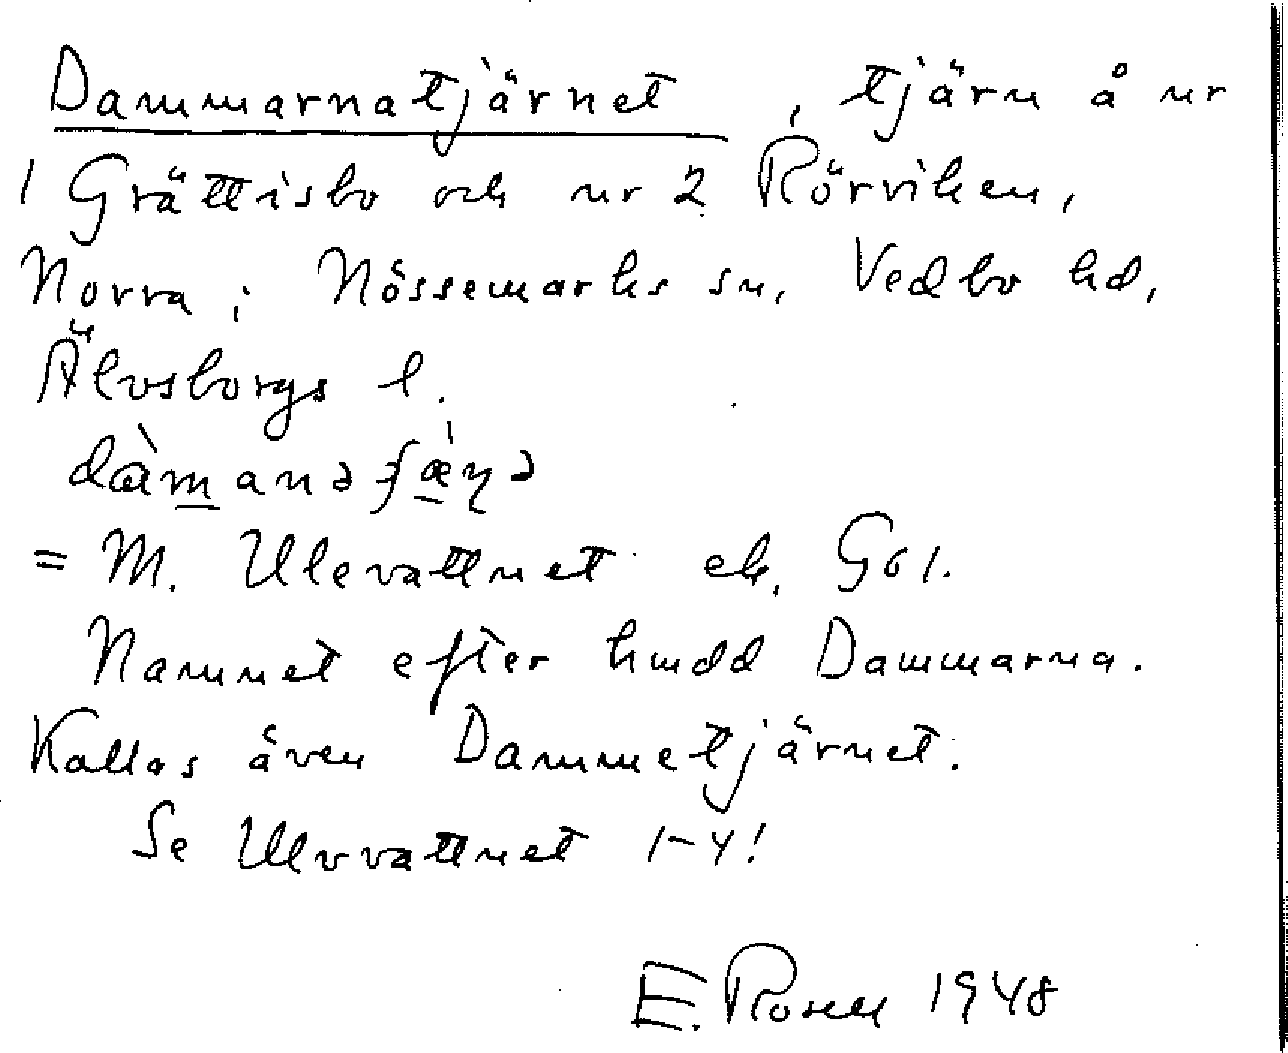 Dammarnatjärnet, tjärn å nr
1 Grättisbo och nr 2 Rörviken,
Norra i Nössemarks sn, Vedbo hd,
Älvsborgs l.
= M. Ulevattnet ek. G61.
Namnet efter hmdd Dammarna.
Kallas även Dammetjärnet.
Se Ulvvattnet 1-4!
E. Rosell 1948